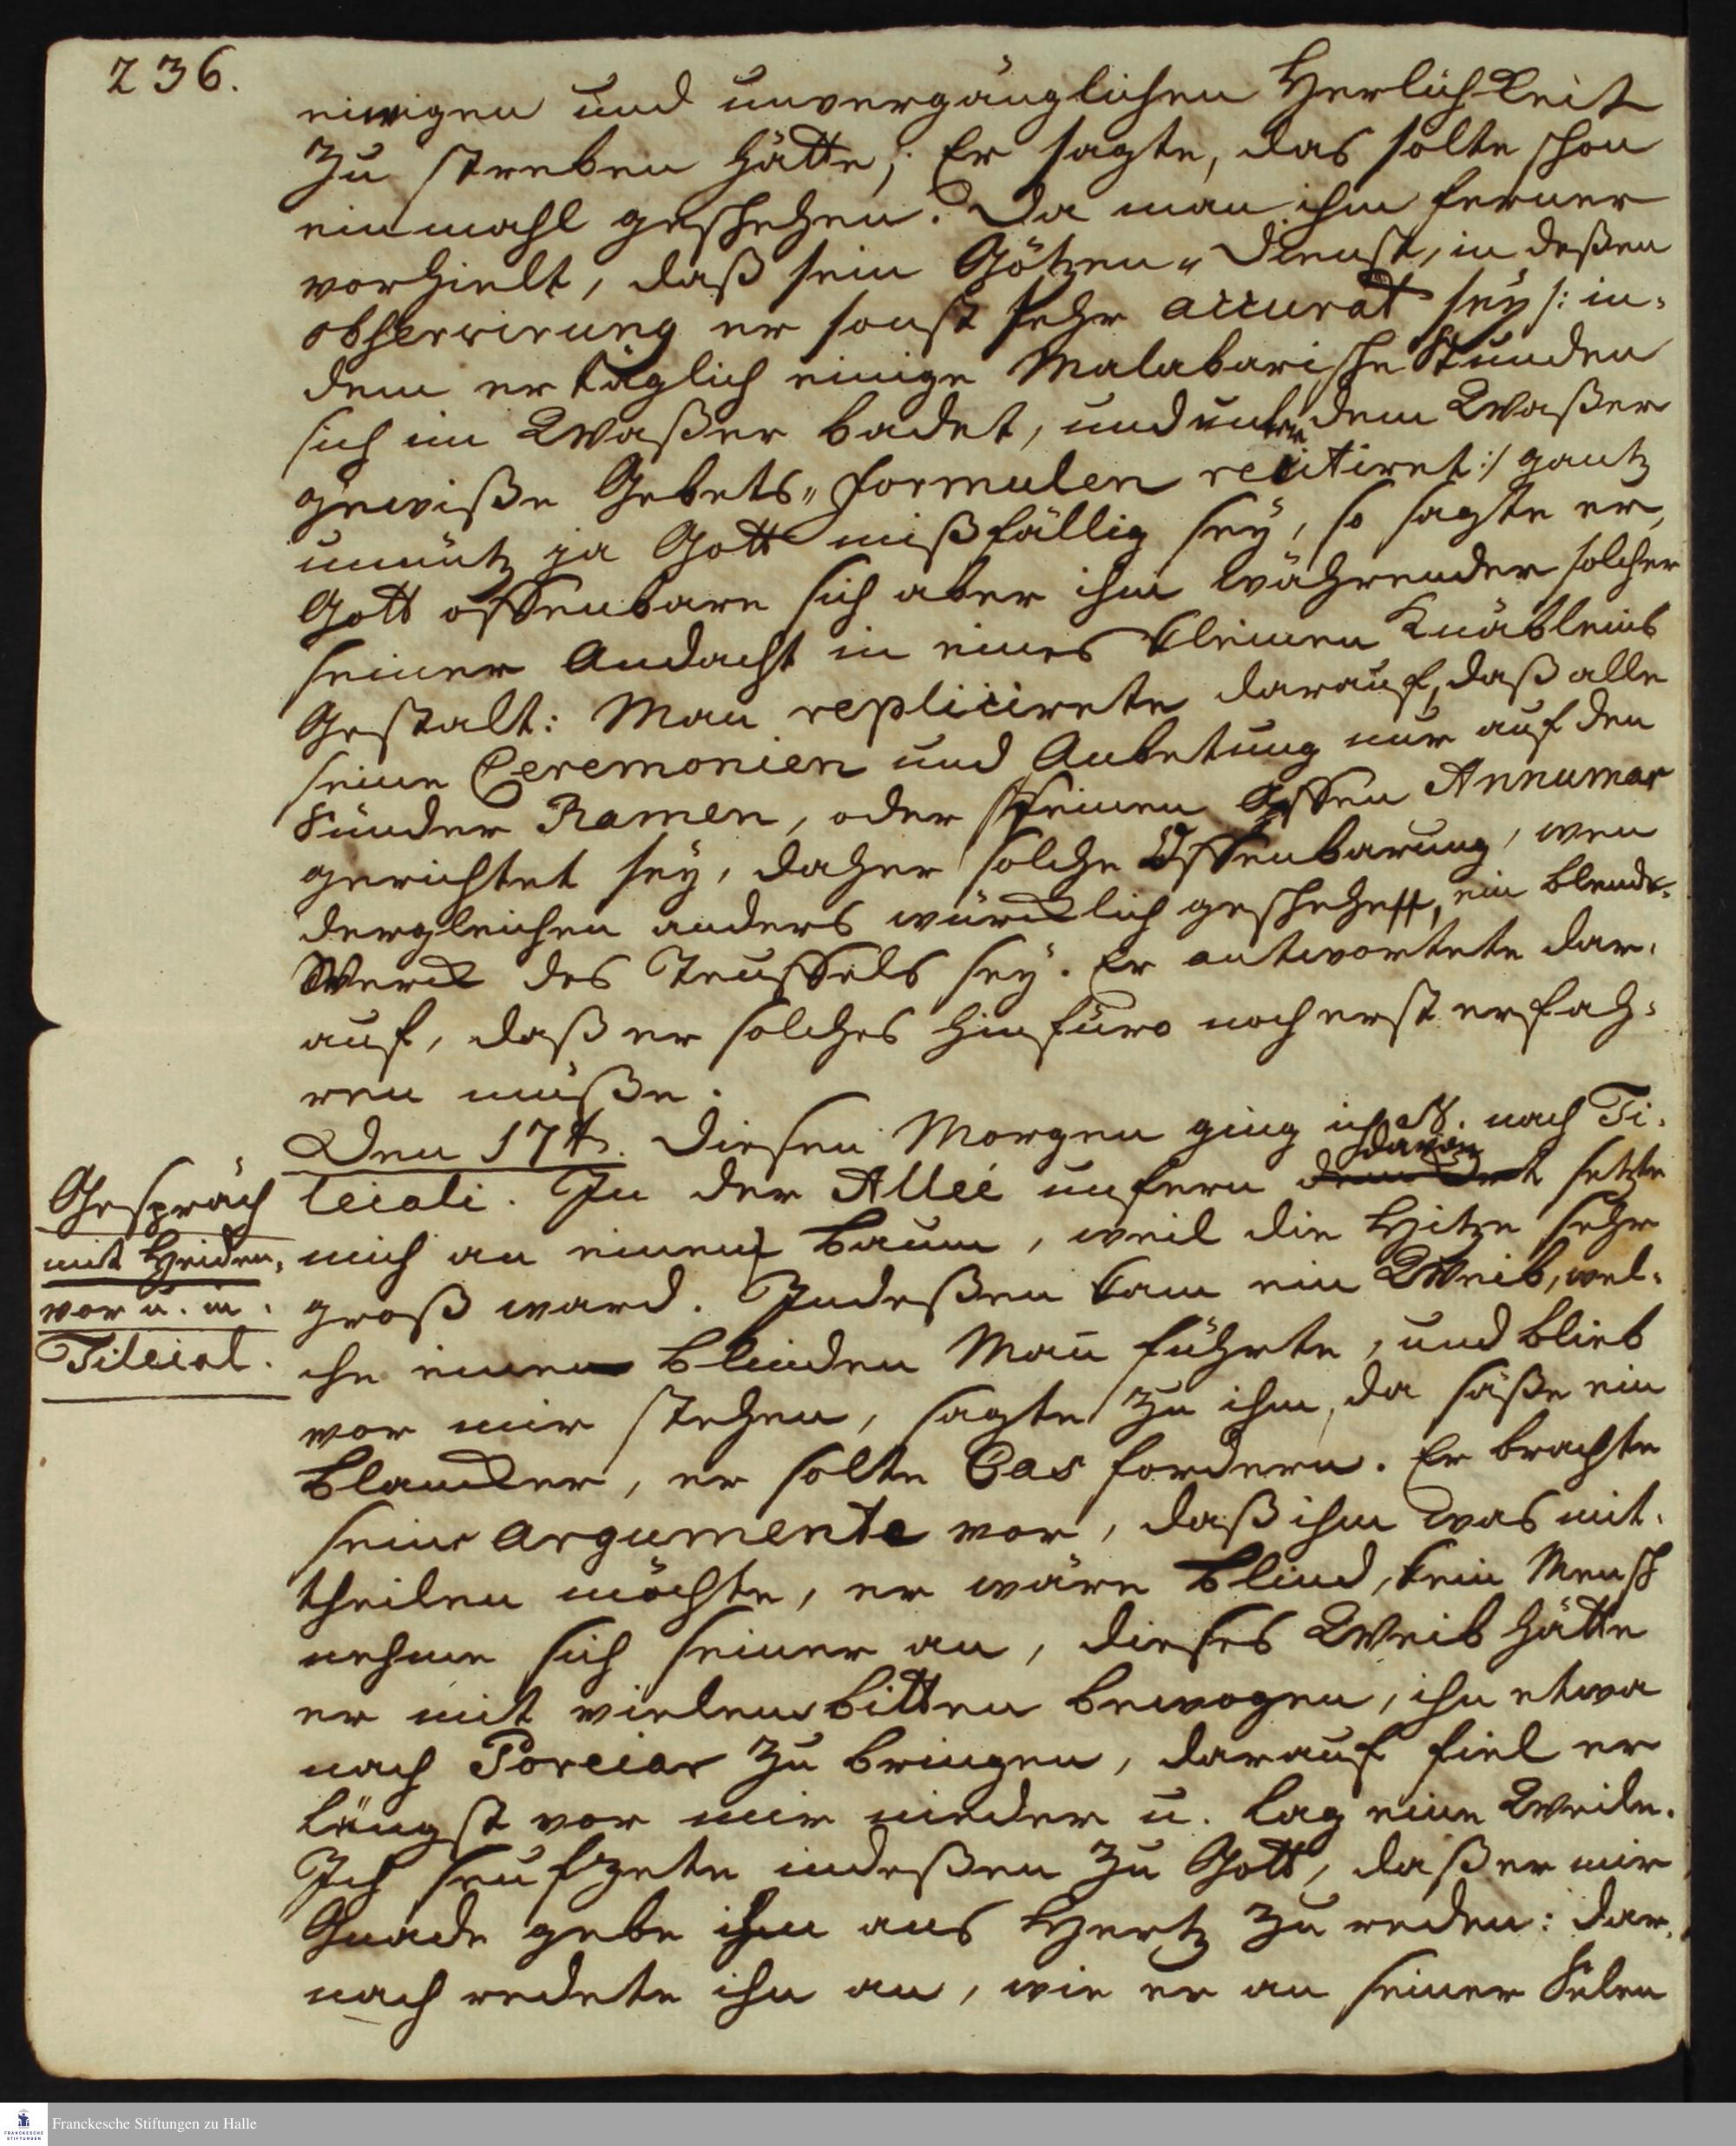 236.
ewigen und unvergänglichen Herlichkeit
zu streben hätte; Er sagte, das solte schon
einmahl geschehen. Da man ihm ferner
vorhielt, daß sein Götzen-Dienst, in deßen
observirung er sonst sehr accurat sey /: in-
dem er täglich einige Malabarische Stunden
sich im Waßer badet, und unter dem Waßer
gewiße Gebets-formulen recitiret :/ gantz
unnütz ja Gott mißfällig sey, so sagte er,
Gott offenbare sich aber ihm währender solcher
seiner Andacht in eines kleinen Knäbleins
Gestalt: Man replicirete darauf, daß alle
seine Ceremonien und Anbetung nur auf den
Sünder Ramen, oder seinen Affen Annumar
gerichtet sey, daher solche Offenbarung, wen
dergleichen anders würcklich geschehe, ein blend-
Werck des Teuffels sey. Er antwortete dar-
auf, daß er solches hinfüro noch erst erfah-
ren müße.
Den 17t. Diesen Morgen ging ich S. nach Ti-
leiali. In der Allee unfern davon setzte
mich an einen Baum, weil die Hitze sehr
groß ward. Indeßen kam ein Weib, wel-
che einen blinden Mañ führte, und blieb
vor mir stehen, sagte zu ihm, da säße ein
Blancker, er solte Cas fordern. Er brachte
seine Argumente vor, daß ihm was mit-
theilen möchte, er wäre blind, kein Mensch
nehme sich seiner an, dieses Weib hätte
er mit vielem bitten bewogen, ihn etwa
nach Poreiar zu bringen, darauf fiel er
längst vor mir nieder u. lag eine Weile.
Ich seufzete indeßen zu Gott, daß er mir
Gnade gebe ihm ans Hertz zu reden: dar-
nach redete ihn an, wie er an seiner Selen
Gespräch
mit Heiden,
vor u. in
Tileial.
Franckesche Stiftungen zu Halle